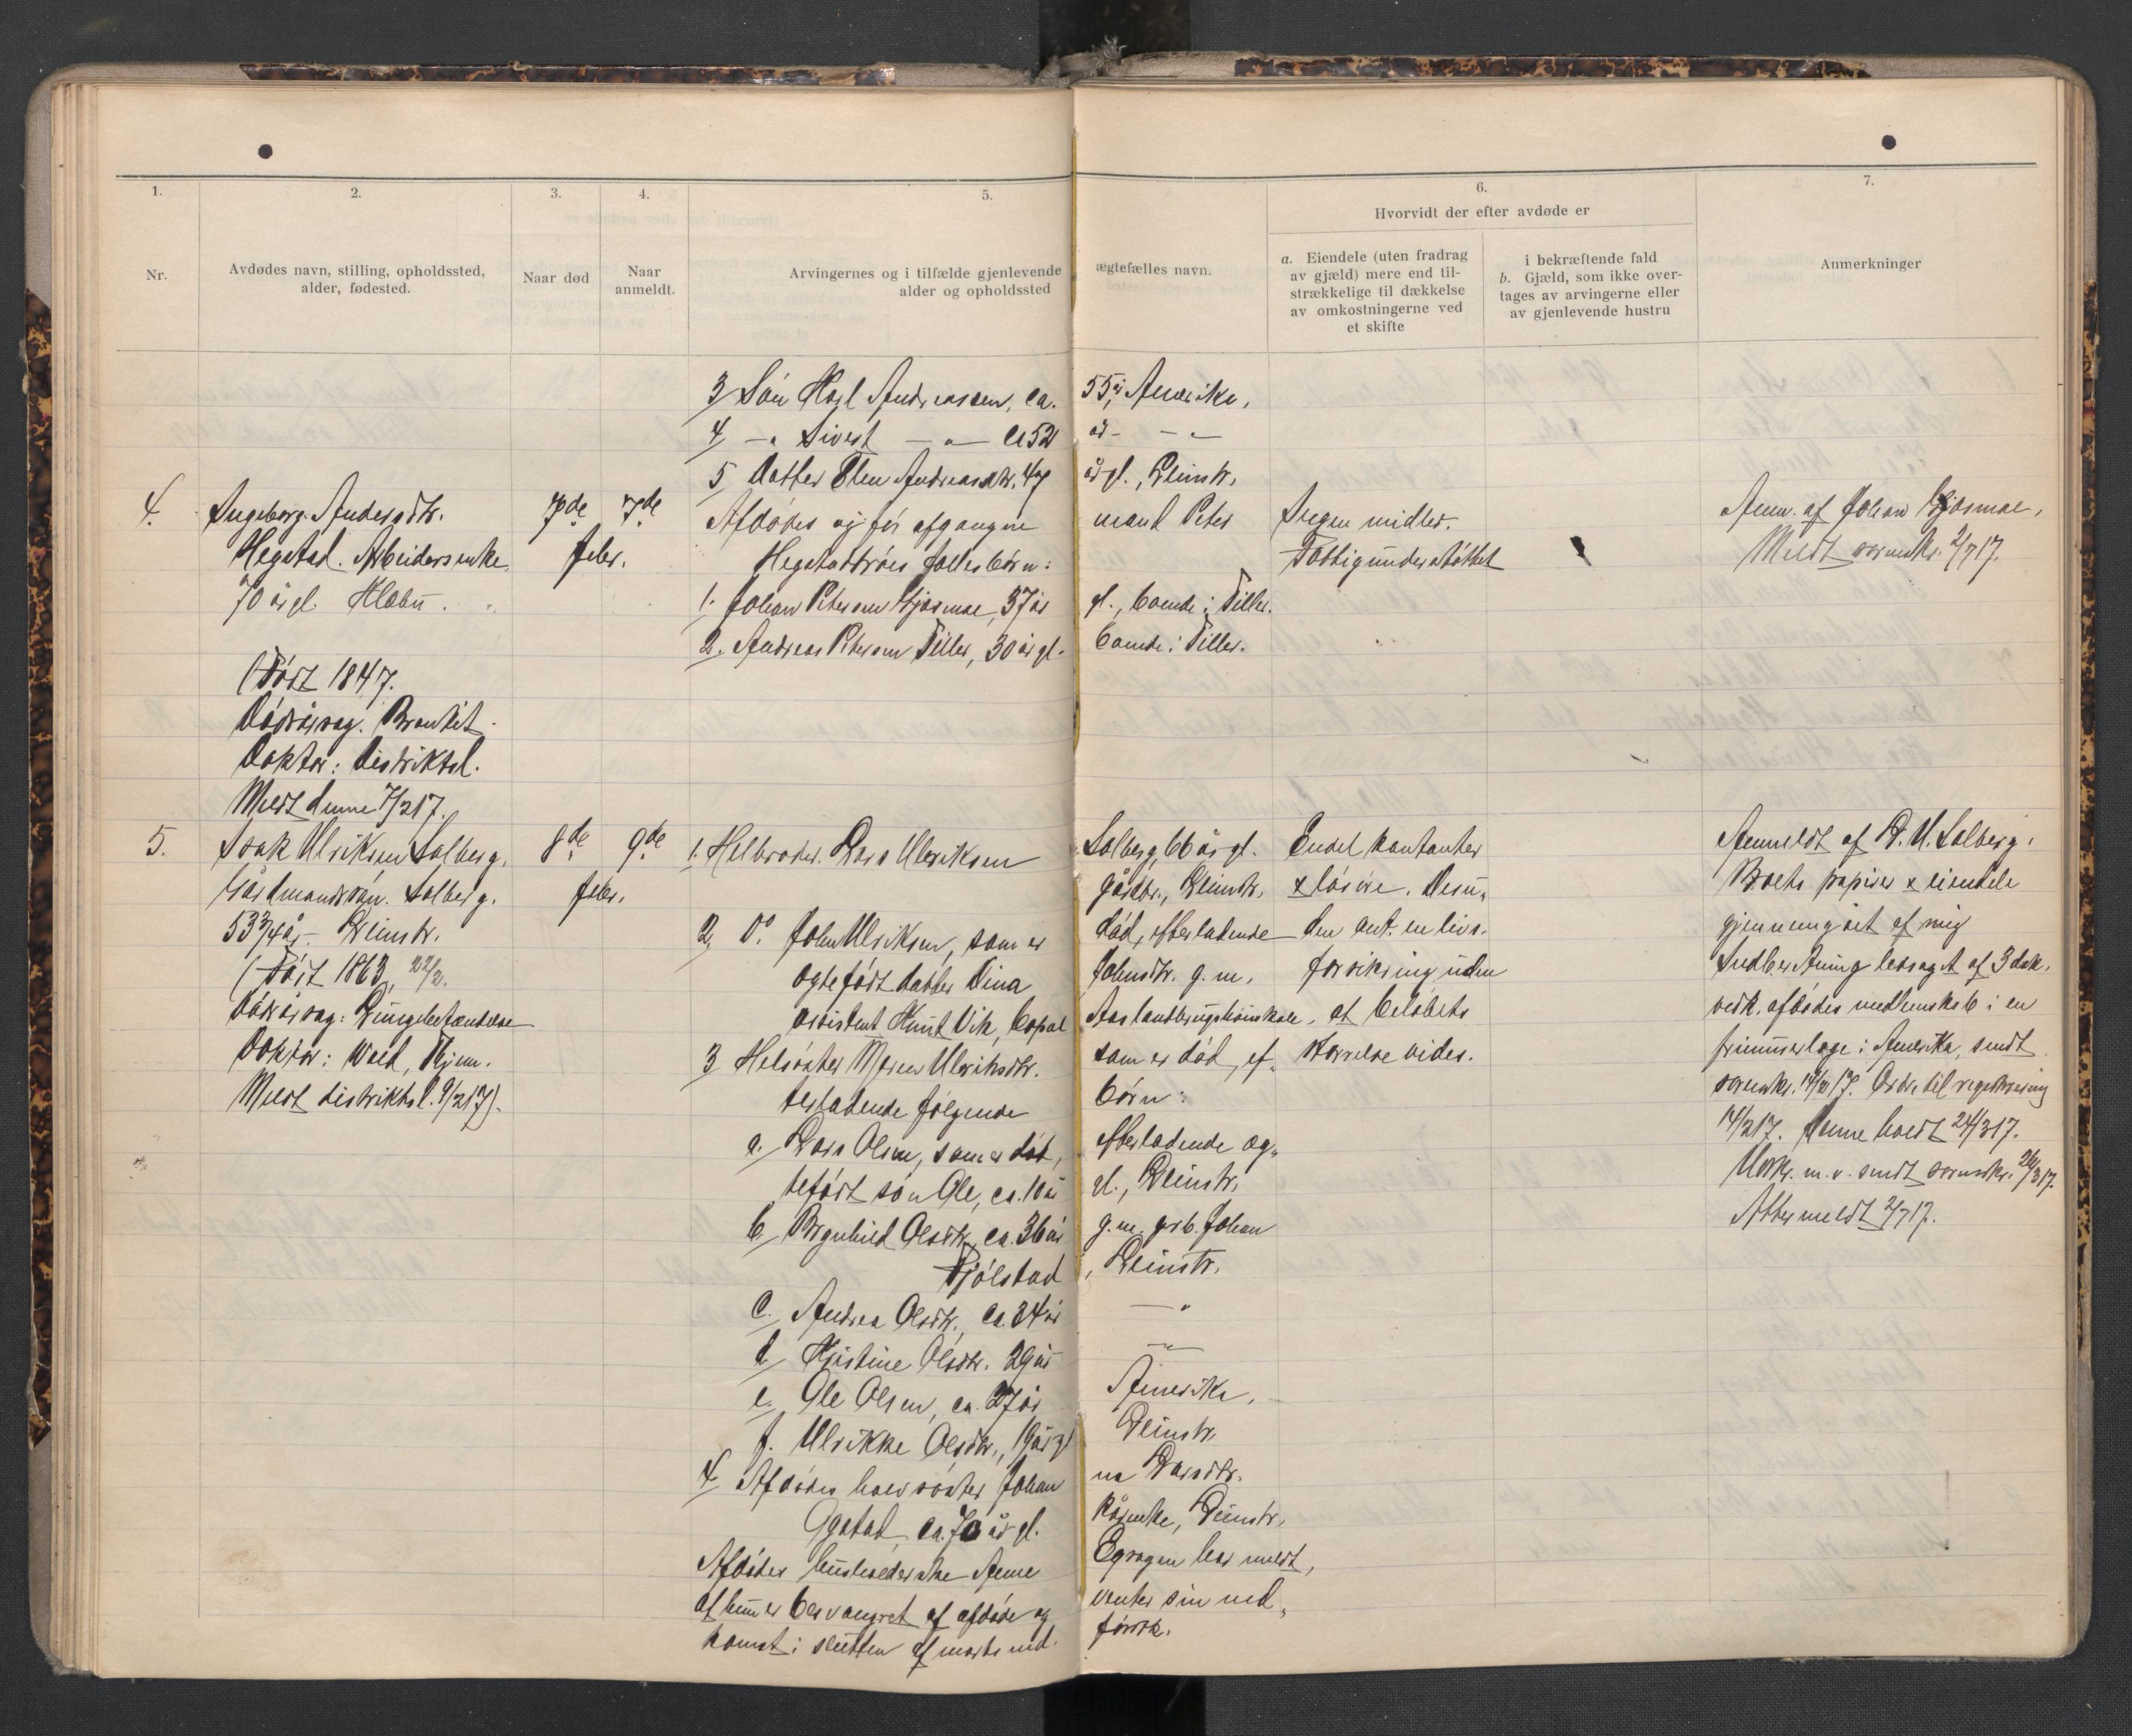 1.
2.
3.
4.
5.
6.
7.
Nr.
Avdødes navn, stilling, opholdssted,
alder, fødested.
Naar død
Naar
anmeldt.
Arvingernes og i tilfælde gjenlevende ægtefælles navn.
alder og opholdssted
Hvorvidt der efter avdøde er
a. Eiendele (uten fradrag
av gjæld) mere end til-
strækkelige til dækkelse
av omkostningerne ved
et skifte
i bekræftende fald
b. Gjæld, som ikke over-
tages av arvingerne eller
av gjenlevende hustru
Anmerkninger
3/ Sön Karl Andreassen, ca. 55 år, Amerika,
4/ —„ Sivert —„— ca 52 år — „ —
5/ Datter Elen Andreasdtr. 49 årgl., Leinstr.
4.
Ingeborg Andersdtr.
Hegstad. Arbeidersenke.
70 årgl. Klæbu.
(Födt 1847.
Dödsårsag: Bronkit.
Doktor: Distriktsl.
Meldt denne 7/2 17.
7de
febr.
7de
Afdödes og för afgangne mand Peter
Hegstadtrøes fællesbörn:
1. Johan Petersen Kjösmoe, 37 år gl., boende i Tiller.
2. Andreas Petersen Tiller, 30 årgl. boende i Tiller.
Ingen midler.
Fattigunderstöttet
Anm. af Johan Kjösmoe,
Meldt sorensk. 2/7 17.
5.
Isak Ulriksen Solberg.
Gårdmandssön. Solberg.
53 3/4 år. Leinstr.
(Födt 1863, 22/2.
Dödsårsag: Lungebetændelse
Doktor: Wold, Hjem.
Meldt distriktsl. 9/2 17).
8de
febr.
9de
1. Helbroder Lars Ulriksen Solberg, 66 årgl.
gårdbr., Leinstr.
2, Do. John Ulriksen, som er död, efterladende
ægtefödt datter Dina Johnsdtr. g. m.
assistent Knut Vik, Aas landbrugshöiskole,
3 Helsöster Maren Ulriksdtr. som er död, ef„
terladende fölgende börn:
a. Lars Olsen, som er död, efterladende æg„
tefödt sön Ole, ca. 10 år gl., Leinstr.
b, Brynhild Olsdtr, ca. 36 år g. m. grb. Johan
Fjölstad, Leinstr.
c. Andrea Olsdtr., ca. 34 år —„
d, Kristine Olsdtr. 29 år —„—
e. Ole Olsen, ca. 27 år Amerika,
f. Ulrikke Olsdtr., 19 årgl Leinstr.
4/ Afdödes halvsöster Johanna Larsdtr.
Ggstad, ca. 70 årgl. kårenke, Leinstr.
Afdödes husholderske Anne Egrogen har meldt,
at hun er besvangret af afdöde og venter sin ned„
komst i slutten af marts md. förstk.
Endel kontanter
& lösöre. Desu„
den ant. en livs-
forsikring uden
at belöbets
störrelse vides.
Anmeldt af L. U. Solberg.
Boets papirer & eiendele
gjennemgået af mig
Indberetning ledsaget af 3 dok.
vedk. afdödes medlemskab i en
Amerika, sendt
sorensk. 14/2 17. Ordre til registrering
14/2 17. Denne holdt 24/3 17.
Udskr. m. v. sendt sorensk. 26/3 17.
Atter meldt 2/7 17.